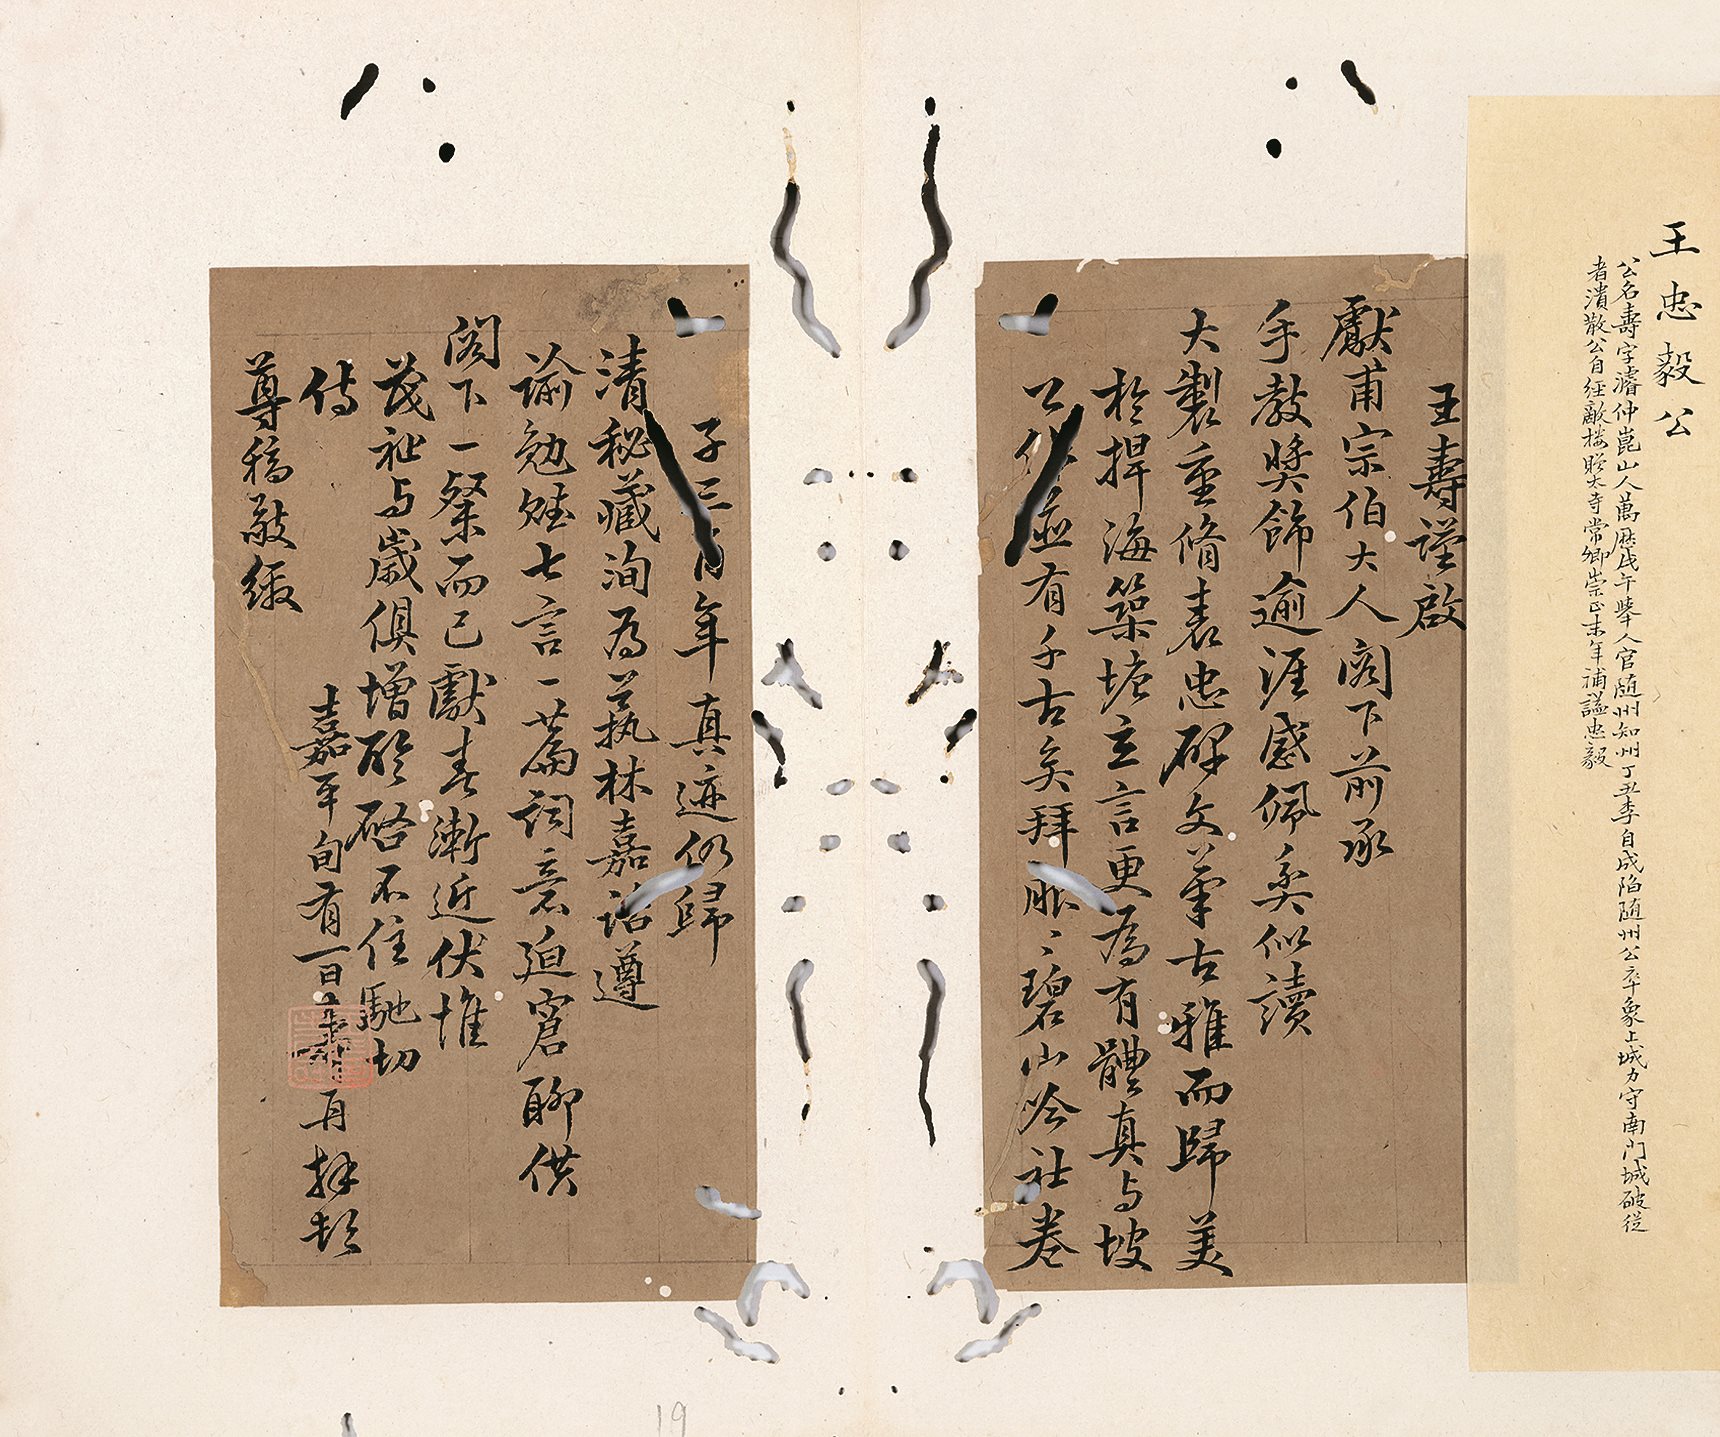 王忠毅公
公名壽字濬仲崑山人萬厯戊午舉人官随州知州丁丑李自成陷随州公卒象上城力守南門城破從
者潰散公自經敵楼贈太寺常卿崇正末年補諡忠毅
王壽謹啟
獻甫宗伯大人阁下前承
手教奖飾逾涯感佩奚似讀
大製重脩表忠碑文笔古雅而歸美
於捍海築塘立言更為有體真与坡
公 並有千古矣拜服〻碧山吟社卷
子三百年真迹仍歸
清秘藏洵为藝林嘉話遵
諭勉賦七言一篇詞意迫窘聊供
阁下一粲而已獻春漸近伏惟
茂祉与嵗俱增聆啓不任馳切
傳
尊稿敬缴
嘉平旬有一日壽再拜頓
19